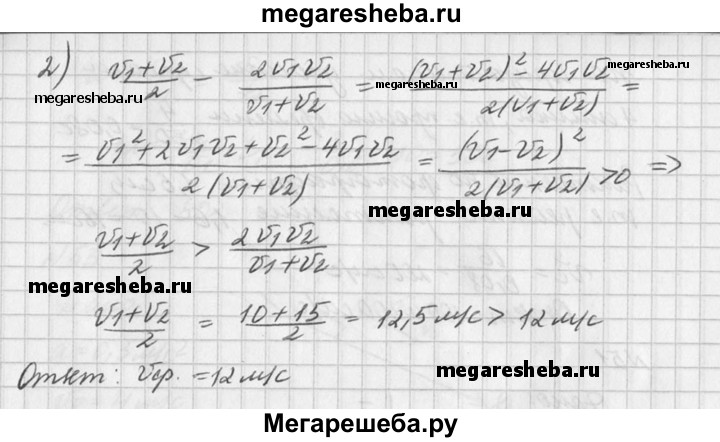 megaresheba.ru
2) (v₁+v₂)/2 − 2v₁v₂/(v₁+v₂) = ((v₁+v₂)² − 4v₁v₂)/(2(v₁+v₂)) =
megaresheba.ru
megaresheba.ru
megaresheba.ru
= (v₁² + 2v₁v₂ + v₂² − 4v₁v₂)/(2(v₁+v₂)) = (v₁−v₂)²/(2(v₁+v₂)) > 0 ⇒
megaresheba.ru
(v₁+v₂)/2 > 2v₁v₂/(v₁+v₂)
megaresheba.ru
(v₁+v₂)/2 = (10+15)/2 = 12,5 м/с > 12 м/с
Ответ: vср. = 12 м/с
megaresheba.ru
Мегарешеба.ру